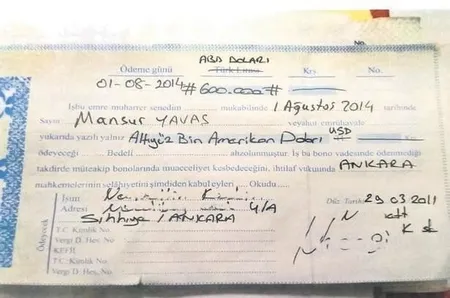 No.
ABD DOLARI
Ödeme günü Türk Lirası Krş. No.
01-08-2014 #600.000#
İşbu emre muharrer senedin mukabilinde 1 Ağustos 2014 tarihinde
Sayın Mansur YAVAŞ veyahut emrühavale
yukarıda yazılı yalnız Altıyüz Bin Amerikan Doları USD
ödeyeceğ Bedeli ahzolunmuştur. İş bu bono vadesinde ödenmediği
takdirde müteakip bonolarında muacceliyet kesbedeceğini, ihtilaf vukuunda ANKARA
mahkemelerinin selâhiyetini şimdiden kabul eyleri Okudu
İsim
Adresi 4/A Düz. Tarihi 29 03 2011
Sıhhıye / ANKARA
Ödeyecek
T.C. Kimlik No.
Vergi D. Hes. No
KEFİL
T.C. Kimlik No.
Vergi D. Hes. No